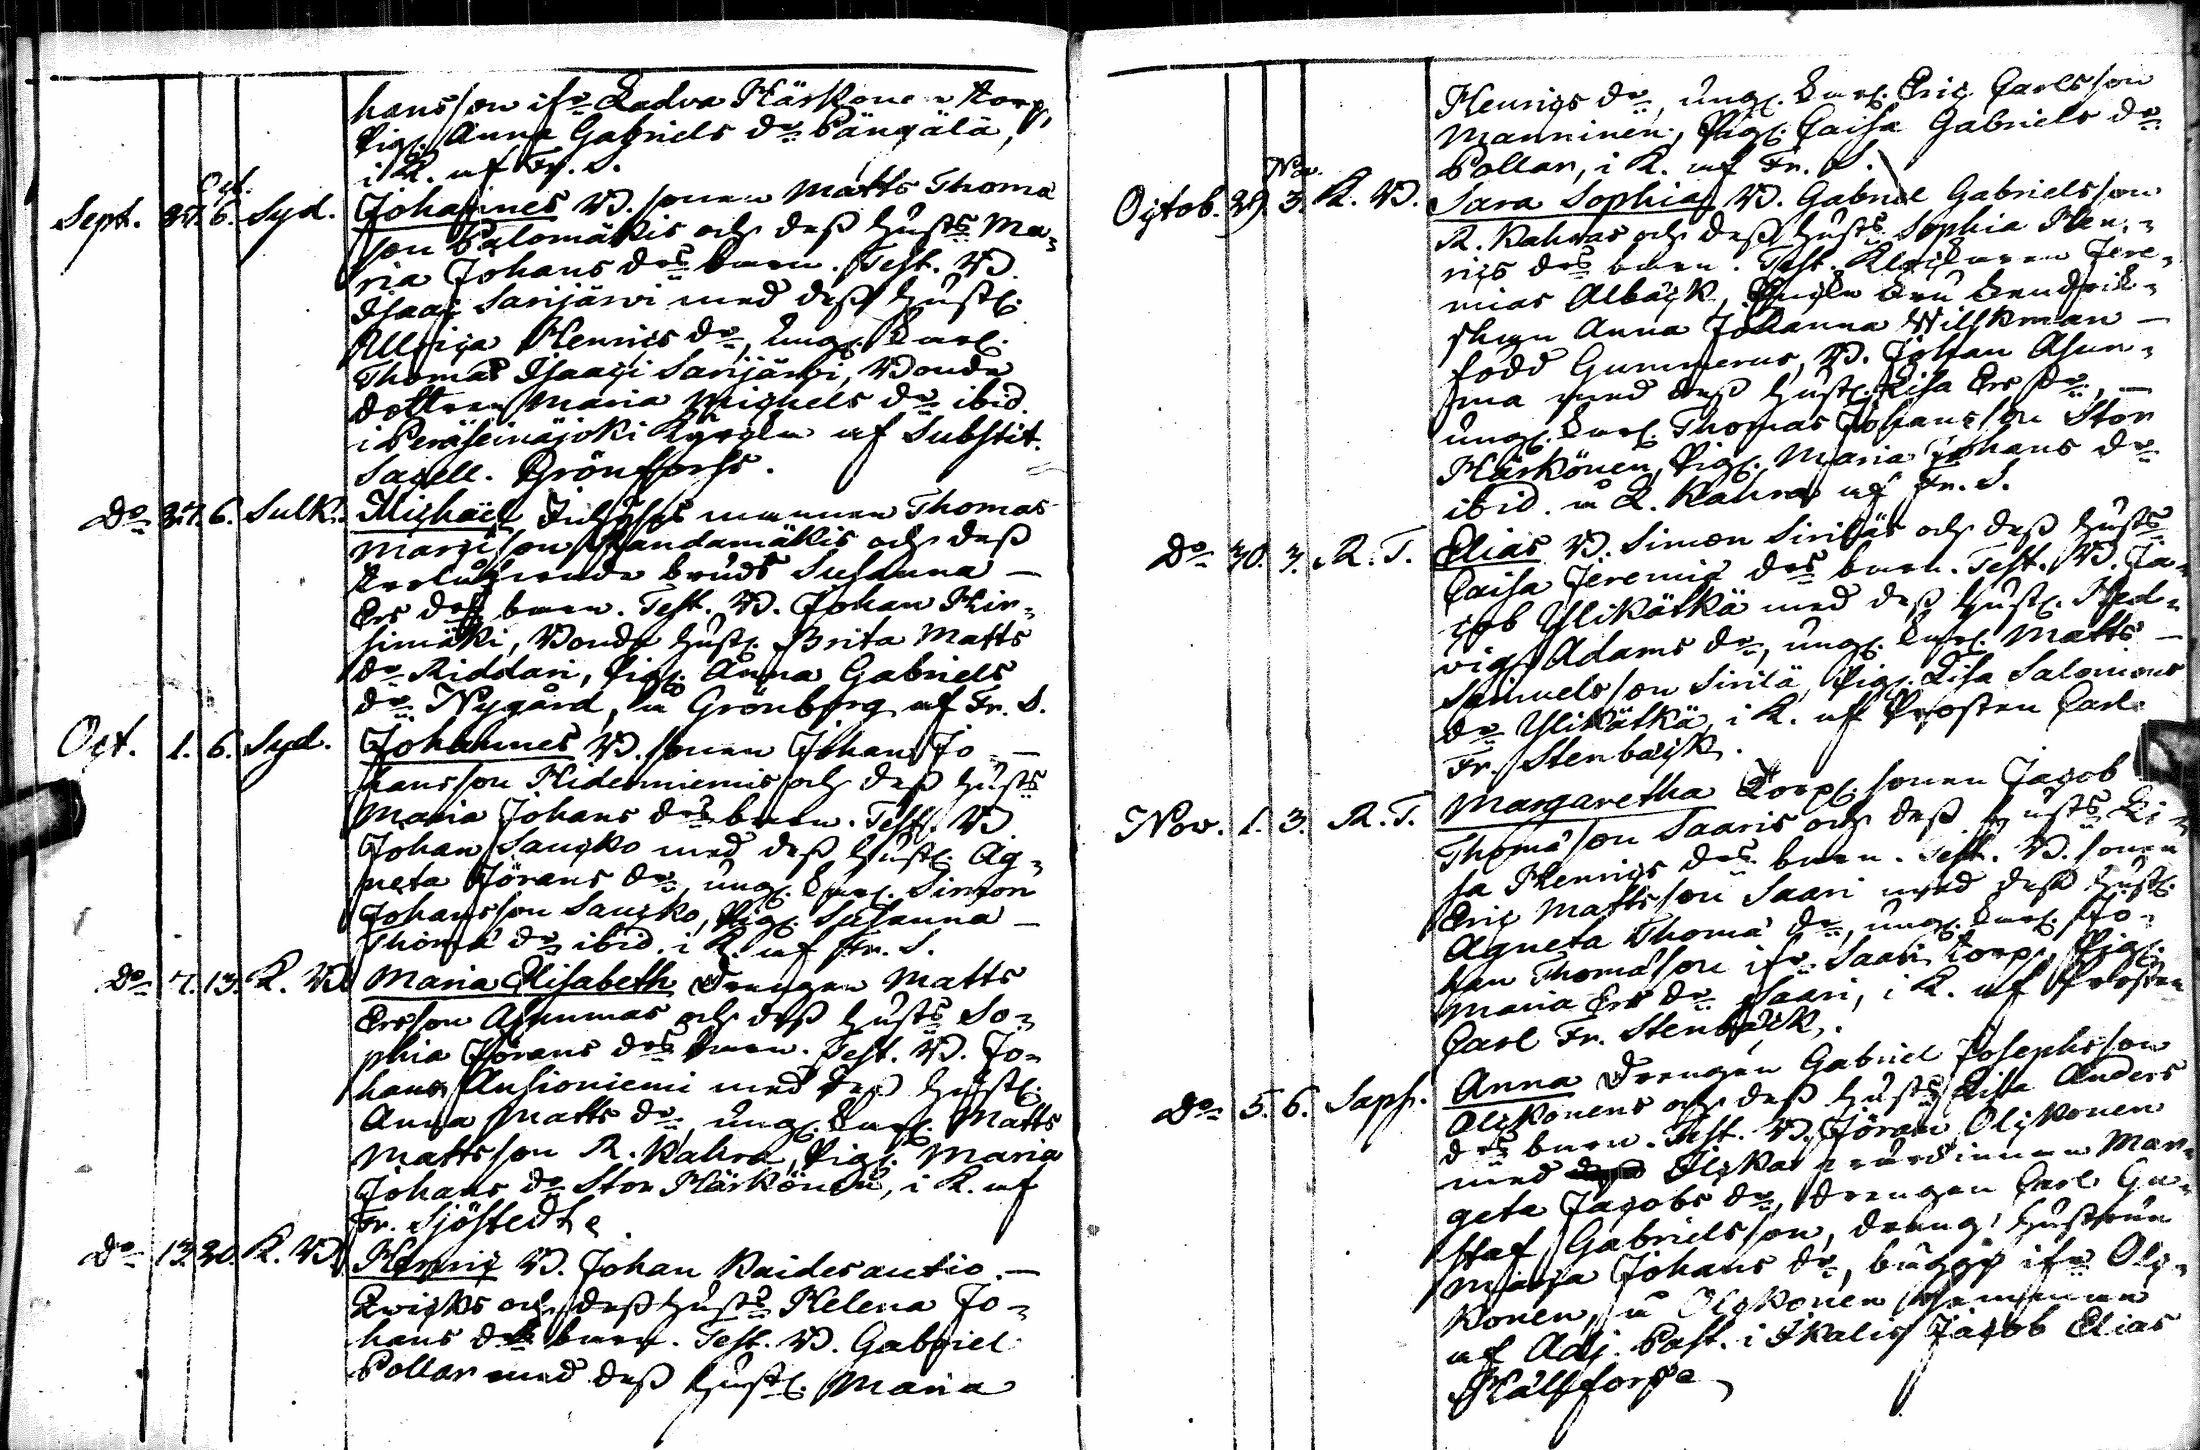 hansson ifr. Ladva Härkönen torp,
Pig. Anna Gabriels dr. Pängälä,
i K. af Fr. S.
Oct.
Sept. 27. 6. Syd. Johannes B. sonen Matts Thomæ
son Palomäkis och dess hust:s Ma-
ria Johans dr:s barn. Test. B.
Isaac Sarijärvi med dess hust.
Ulrica Henrics dr., ung. karl.
Thomas Isaaci Sarijärvi, Bonde
dottren Maria Michels dr. ibid.
i Peräseinäjoki Kyrcka af Substit.
Sacell. Grönfors.
Do 27. 6. Sulk. Michaël Inhyses mannen Thomas
Marcisson Randamäkis och dess
bruds Susanna
Ers dr:s barn. Test. B. Johan Hir-
simäki, Bonde hust. Brita Matts
dr. Riddari, Pig. Anna Gabriels
dr. Nygård, å Grönberg af Fr. S.
Oct. 1. 6. Syd. Johannes B. sonen Johan Jo-
hansson Hidenniemis och dess hust:s
Maria Johans dr:s barn. Test. B.
Johan Saucko med dess hust. Ag-
neta Jörans dr., ung. karl. Simon
Johansson Saucko, Pig. Susanna
Thomæ dr. ibid. i K. af Fr. S.
Do 7. 13. K. B. Maria Elisabeth Drengen Matts
Ersson Asunmas och dess hust:s So-
phia Jörans dr:s barn. Test. B. Jo-
hans Ansioniemi med dess hust.
Anna Matts dr., ung. karl. Matts
Mattsson R. Kahra, Pig. Maria
Johans dr. Stor Härkönen, i K. af
Fr. Sjöstedt
Do 13. 20. K. B. Henric B. Johan Kaidesautio
Kvicks och dess hust:s Helena Jo-
hans dr:s barn. Test. B. Gabriel
Pollar med dess hust. Maria
Henrics dr., ung. karl. Eric Carlsson
Manninen, Pig. Caisa Gabriels dr.
Pollar, i K. af Fr. S.
Nov.
Octob. 29. 3. K. B. Sara Sophia B. Gabriel Gabrielsson
R. Kahras och dess hust:s Sophia Hen-
rics dr:s barn. Test. Klockaren Jere-
mias Albäck,
Anna Johanna Willkman
född Gummerus, B. Johan Asun-
ma med dess hust. Lisa Ers dr.,
ung. karl Thomas Johansson Stor
Härkönen, Pig. Maria Johans dr.
ibid. å R. Kahra af Fr. S.
Do 30. 3. R. T. Elias B. Simon Siriläs och dess hust:s
Caisa Jeremiæ dr:s barn. Test. B. Ja-
cob Ylikätkä med dess hust. Hed-
vig Adams dr., ung. karl. Matts
Samuelsson Sirilä, Pig. Lisa Salomons
dr. Ylikätkä, i K. af Prosten Carl
Fr. Stenbäck.
Nov. 1. 3. R. T. Margaretha Torp. sonen Jacob
Thomæson Saaris och dess hust:s Li-
sa Henrics dr:s barn. Test. B. sonen
Eric Mattsson Saari med dess hust.
Agneta Thomæ dr., ung. karl. Jo-
han Thomæson ifr. Saari torp, Pig.
Maria Ers dr. Saari, i K. af Prosten
Carl Fr. Stenbäck.
Do 5. 6. Saph. Anna Drengen Gabriel Josephsson
Olckonens och dess hust:s Lisa Anders
dr:s barn. Test. B. Jöran Olckonen
med Mar-
geta Jacobs dr., Drengen Carl Gu-
staf Gabrielsson, dreng hustrun
Maria Johans dr., ifr. Olc-
konen, å Olckonen hemman
af Adj. Past. i Ikalis Jacob Elias
Hällfors